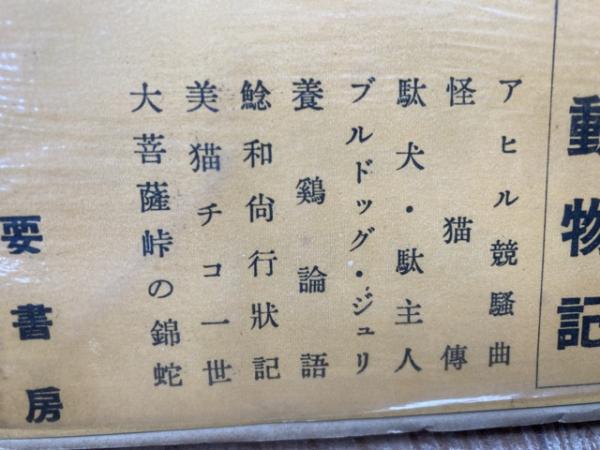 動物記
アヒル競騒曲
怪猫傳
駄犬・駄主人
ブルドッグ・ジュリ
養鷄論語
鯰和尙行狀記
美猫チコ一世
大菩薩峠の錦蛇
要書房